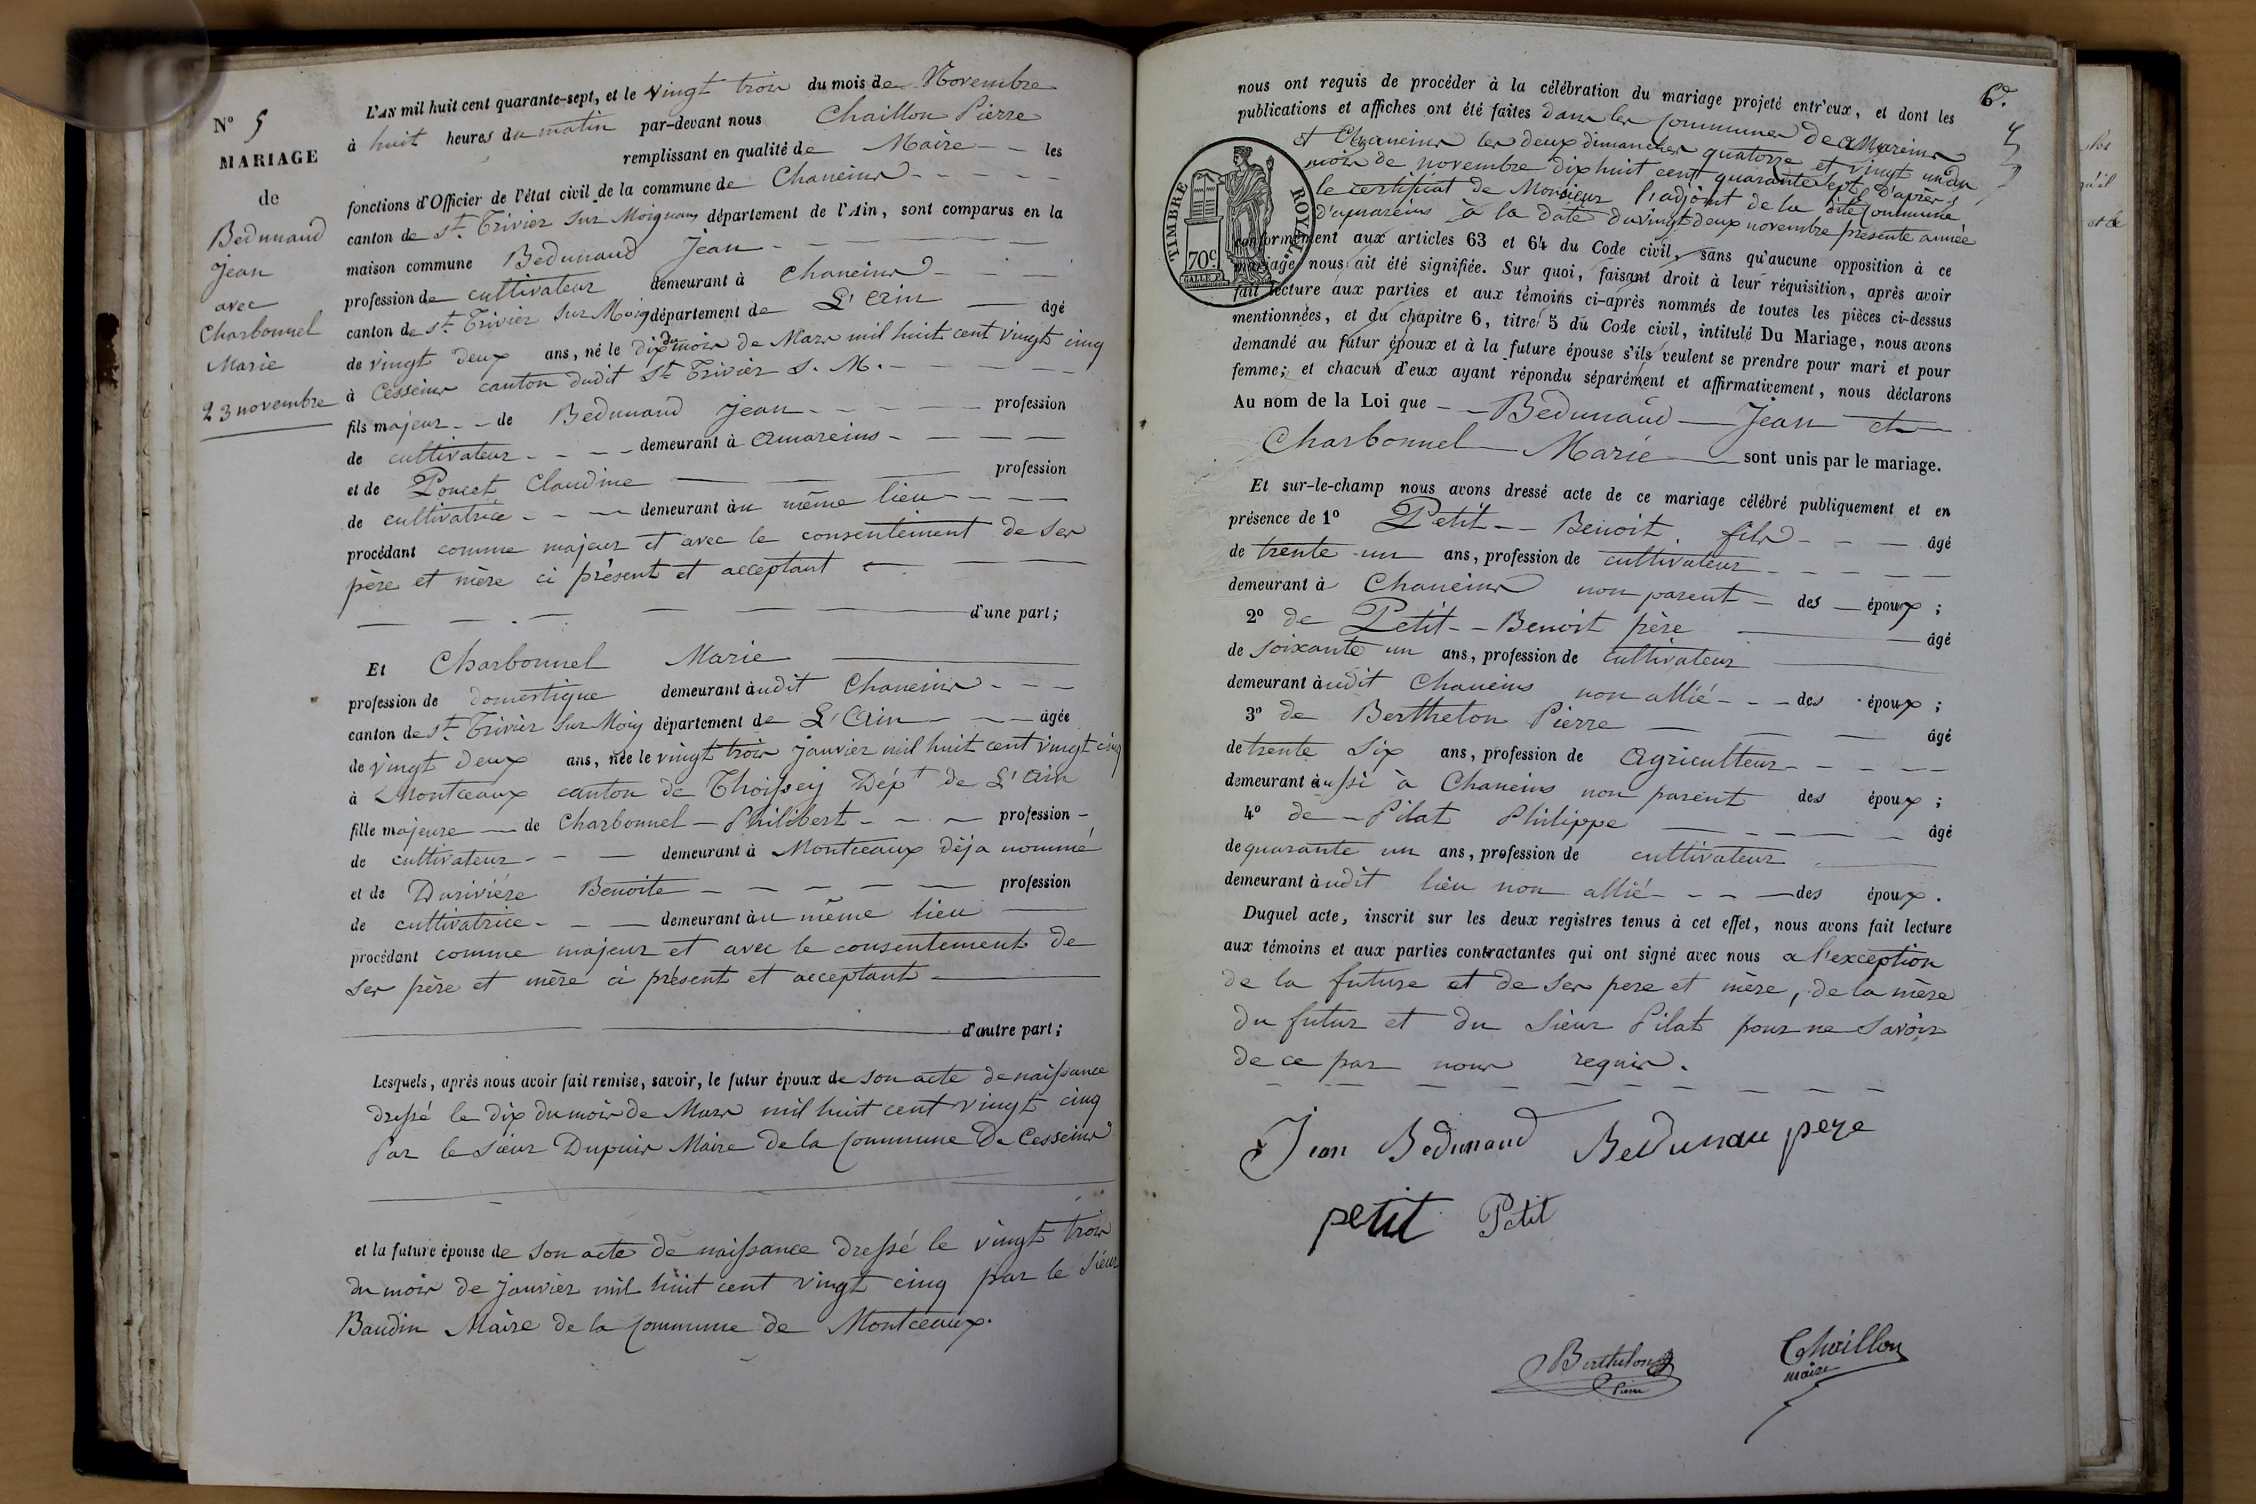 N° 5
MARIAGE
de
Bedunaud
Jean
avec
Charbonnel
Marie
23 novembre
L'AN mil huit cent quarante-sept, et le vingt trois du mois de Novembre
à huit heures du matin par-devant nous Chaillon Pierre
remplissant en qualité de Maire les
fonctions d'Officier de l'état civil de la commune de Chaneins
canton de St. Trivier Sur Moignans département de l'Ain, sont comparus en la
maison commune Bedunaud Jean
profession de cultivateur demeurant à Chaneins
canton de St. Trivier Sur Moig département de L'Ain âgé
de vingt deux ans, né le dix du mois de Mars mil huit cent vingt cinq
à Cesseins canton dudit St. Trivier S. M.
fils majeur de Bedunaud Jean profession
de cultivateur demeurant à Amareins
et de Poncet Claudine profession
de cultivatrice demeurant au même lieu
procédant comme majeur et avec le consentement de ses
père et mère ci présent et acceptant
d'une part ;
Et Charbonnel Marie
profession de domestique demeurant audit Chaneins
canton de St. Trivier Sur Moig département de L'Ain âgée
de vingt deux ans, née le vingt trois janvier mil huit cent vingt cinq
à Montceaux canton de Thoissey Dépt de L'Ain
fille majeure de Charbonnel Philibert profession
de cultivateur demeurant à Montceaux déja nommé
et de Durivière Benoite profession
de cultivatrice demeurant au même lieu
procédant comme majeur et avec le consentement de
ses père et mère ci présent et acceptant
d'autre part ;
Lesquels, après nous avoir fait remise, savoir, le futur époux de son acte de naissance
dressé le dix du mois de Mars mil huit cent vingt cinq
Par le sieur Dupuis Maire de la Commune de Cesseins
et la future épouse de son acte de naissance dressé le vingt trois
du mois de janvier mil huit cent vingt cinq par le sieur
Baudin Maire de la Commune de Montceaux.
6e.
nous ont requis de procéder à la célébration du mariage projeté entr'eux, et dont les
publications et affiches ont été faites dans les Communes de Amareins
et Chaneins les deux dimanches quatorze et vingt un du
mois de novembre dix huit cent quarante sept d'après
le certificat de Monsieur l'adjoint de la dite Commune
d'amareins à la date du vingt deux novembre présente année
conformément aux articles 63 et 64 du Code civil, sans qu'aucune opposition à ce
mariage nous ait été signifiée. Sur quoi, faisant droit à leur réquisition, après avoir
fait lecture aux parties et aux témoins ci-après nommés de toutes les pièces ci-dessus
mentionnées, et du chapitre 6, titre 5 du Code civil, intitulé Du Mariage, nous avons
demandé au futur époux et à la future épouse s'ils veulent se prendre pour mari et pour
femme ; et chacun d'eux ayant répondu séparément et affirmativement, nous déclarons
Au nom de la Loi que Bedunaud Jean et
Charbonnel Marie sont unis par le mariage.
Et sur-le-champ nous avons dressé acte de ce mariage célébré publiquement et en
présence de 1° Petit Benoit fils âgé
de trente un ans, profession de cultivateur
demeurant à Chaneins non parent des époux ;
2° de Petit Benoit père âgé
de soixante un ans, profession de cultivateur
demeurant audit Chaneins non allié des époux ;
3° de Berthelon Pierre âgé
de trente six ans, profession de Agriculteur
demeurant aussi à Chaneins non parent des époux ;
4° de Pilat Philippe âgé
de quarante un ans, profession de cultivateur
demeurant audit lieu non allié des époux.
Duquel acte, inscrit sur les deux registres tenus à cet effet, nous avons fait lecture
aux témoins et aux parties contractantes qui ont signé avec nous a l'exception
de la future et de ses pere et mère, de la mère
du futur et du Sieur Pilat pour ne savoir
de ce par nous requis.
Jean Bedunaud Bedunau pere
petit Petit
Berthelon
Pierre
Chaillon
maire
TIMBRE ROYAL
70c